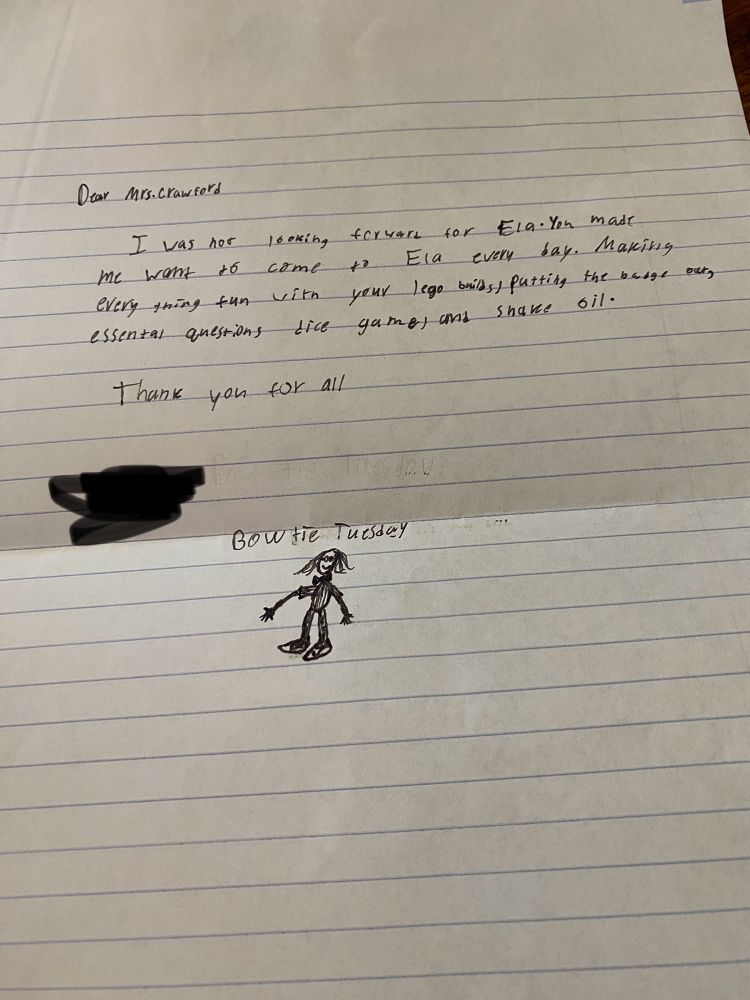 Dear Mrs.Crawford
I was not looking forward for Ela. You made
me want to come to Ela every day. Making
every thing fun with your lego builds, putting the badge out,
essental questions dice games, and snake oil.
Thank you for all
Bow tie Tuesday
BOW tie Tuesday